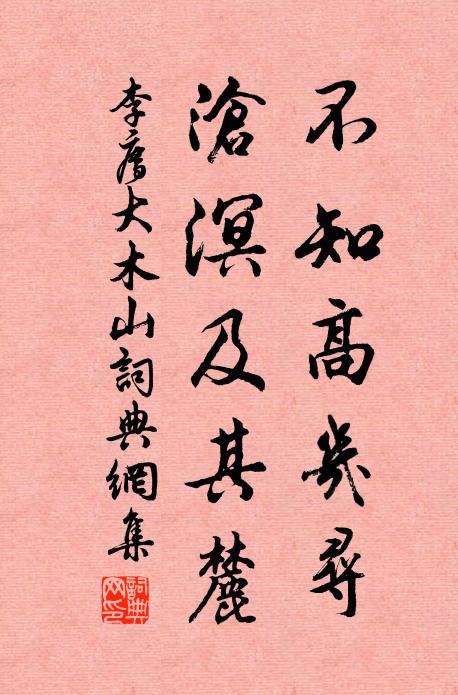 不知高幾尋
滄溟及其麓
李廌大木山詞典網集
詞典
网